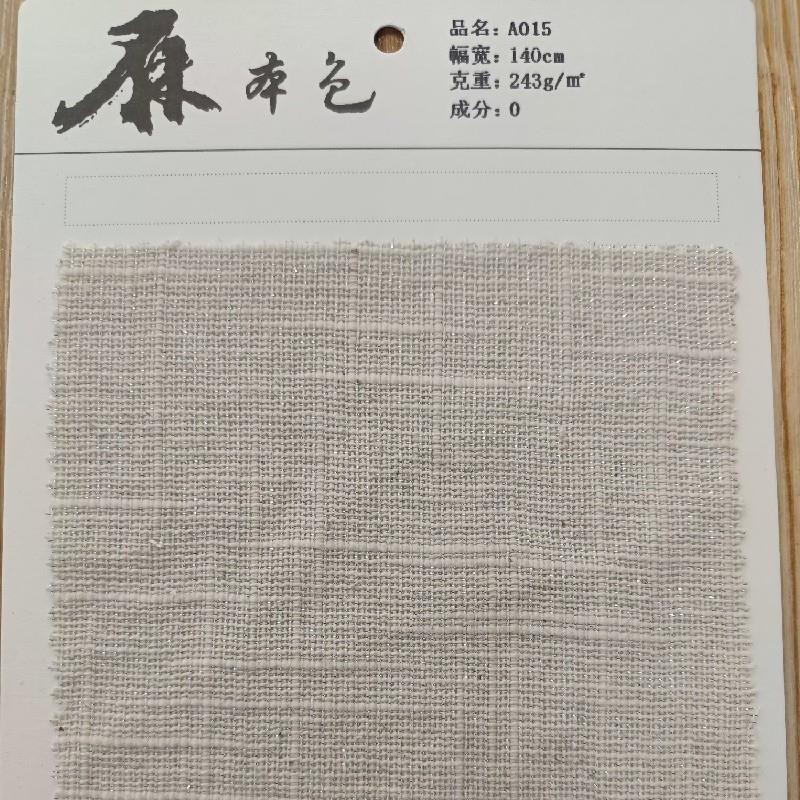 麻本色
品名: A015
幅宽: 140cm
克重: 243g/㎡
成分: 0